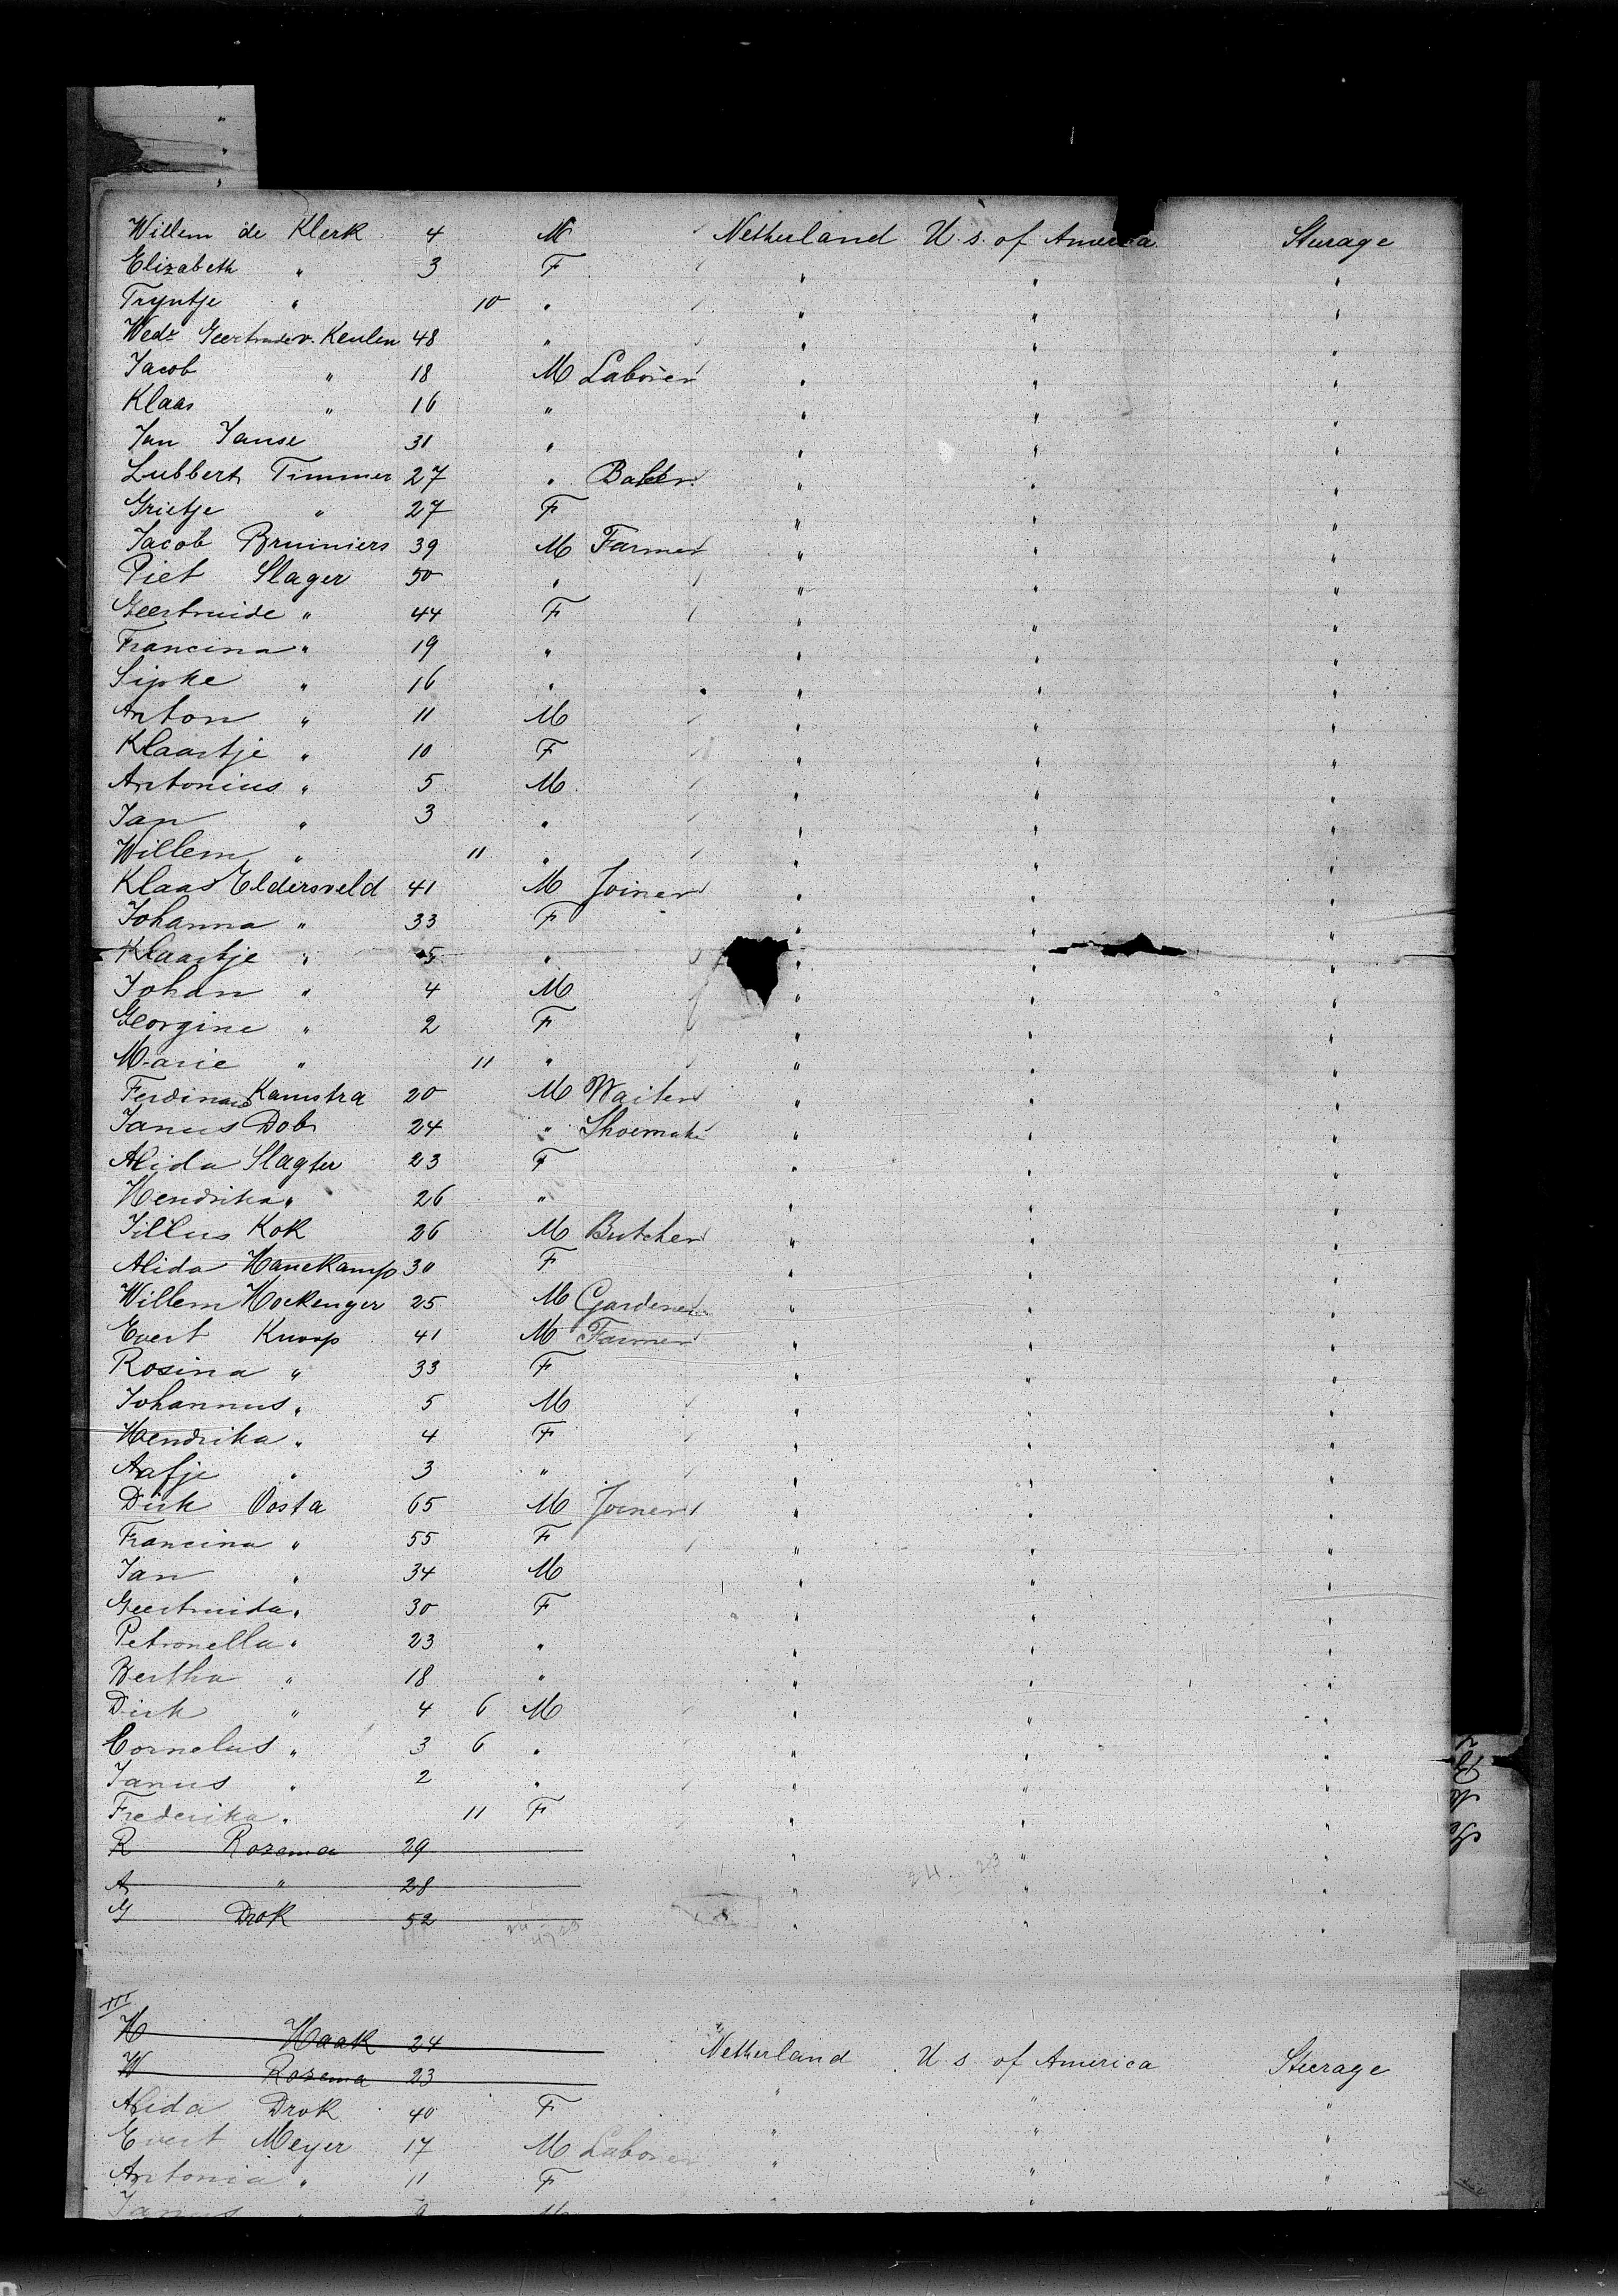 Willem de Klerk 4 M Netherland U.s. of America Sterage
Elizabeth " 3 F " " "
Tryntje " 10 " " " "
Wedᵉ Geertrude v. Keulen 48 " " " "
Jacob " 18 M Laborer " " "
Klaas " 16 " " " "
Jan Janse 31 " " " "
Lubbert Timmer 27 " Baker " " "
Grietje " 27 F " " "
Jacob Bruiniers 39 M Farmer " " "
Piet Slager 50 " " " "
Geertruide " 44 F " " "
Francina " 19 " " " "
Sipke " 16 " " " "
Anton " 11 M " " "
Klaartje " 10 F " " "
Antonius " 5 M " " "
Jan " 3 " " " "
Willem " 11 " " " "
Klaas Eldersveld 41 M Joiner " " "
Johanna " 33 F " " "
Klaartje " 5 " " " "
Johan " 4 M " " "
Georgine " 2 F " " "
Marie " 11 " " " "
Ferdinand Kamstra 20 M Waiter " " "
Janus Dob 24 " Shoemake " " "
Alida Slagter 23 F " " "
Hendrika " 26 " " " "
Jillus Kok 26 M Butcher " " "
Alida Hanekamp 30 F " " "
Willem Hockenger 25 M Gardener " " "
Evert Knoop 41 M Farmer " " "
Rosina " 33 F " " "
Johannus " 5 M " " "
Hendrika " 4 F " " "
Aafje " 3 " " " "
Dirk Oosta 65 M Joiner " " "
Francina " 55 F " " "
Jan " 34 M " " "
Geertruida " 30 F " " "
Petronella " 23 " " " "
Bertha " 18 " " " "
Dirk " 4 6 M " " "
Cornelus " 3 6 " " " "
Janus " 2 " " " "
Frederika " 11 F " " "
R Rozema 29 " " "
A " 28 " " "
G Drok 52 " " "
III
H Haak 24 Netherland U s of America Steerage
W Rozema 23 " " "
Alida Drok 40 F " " "
Evert Meyer 17 M Laborer " " "
Antonia " 11 F " " "
Janus